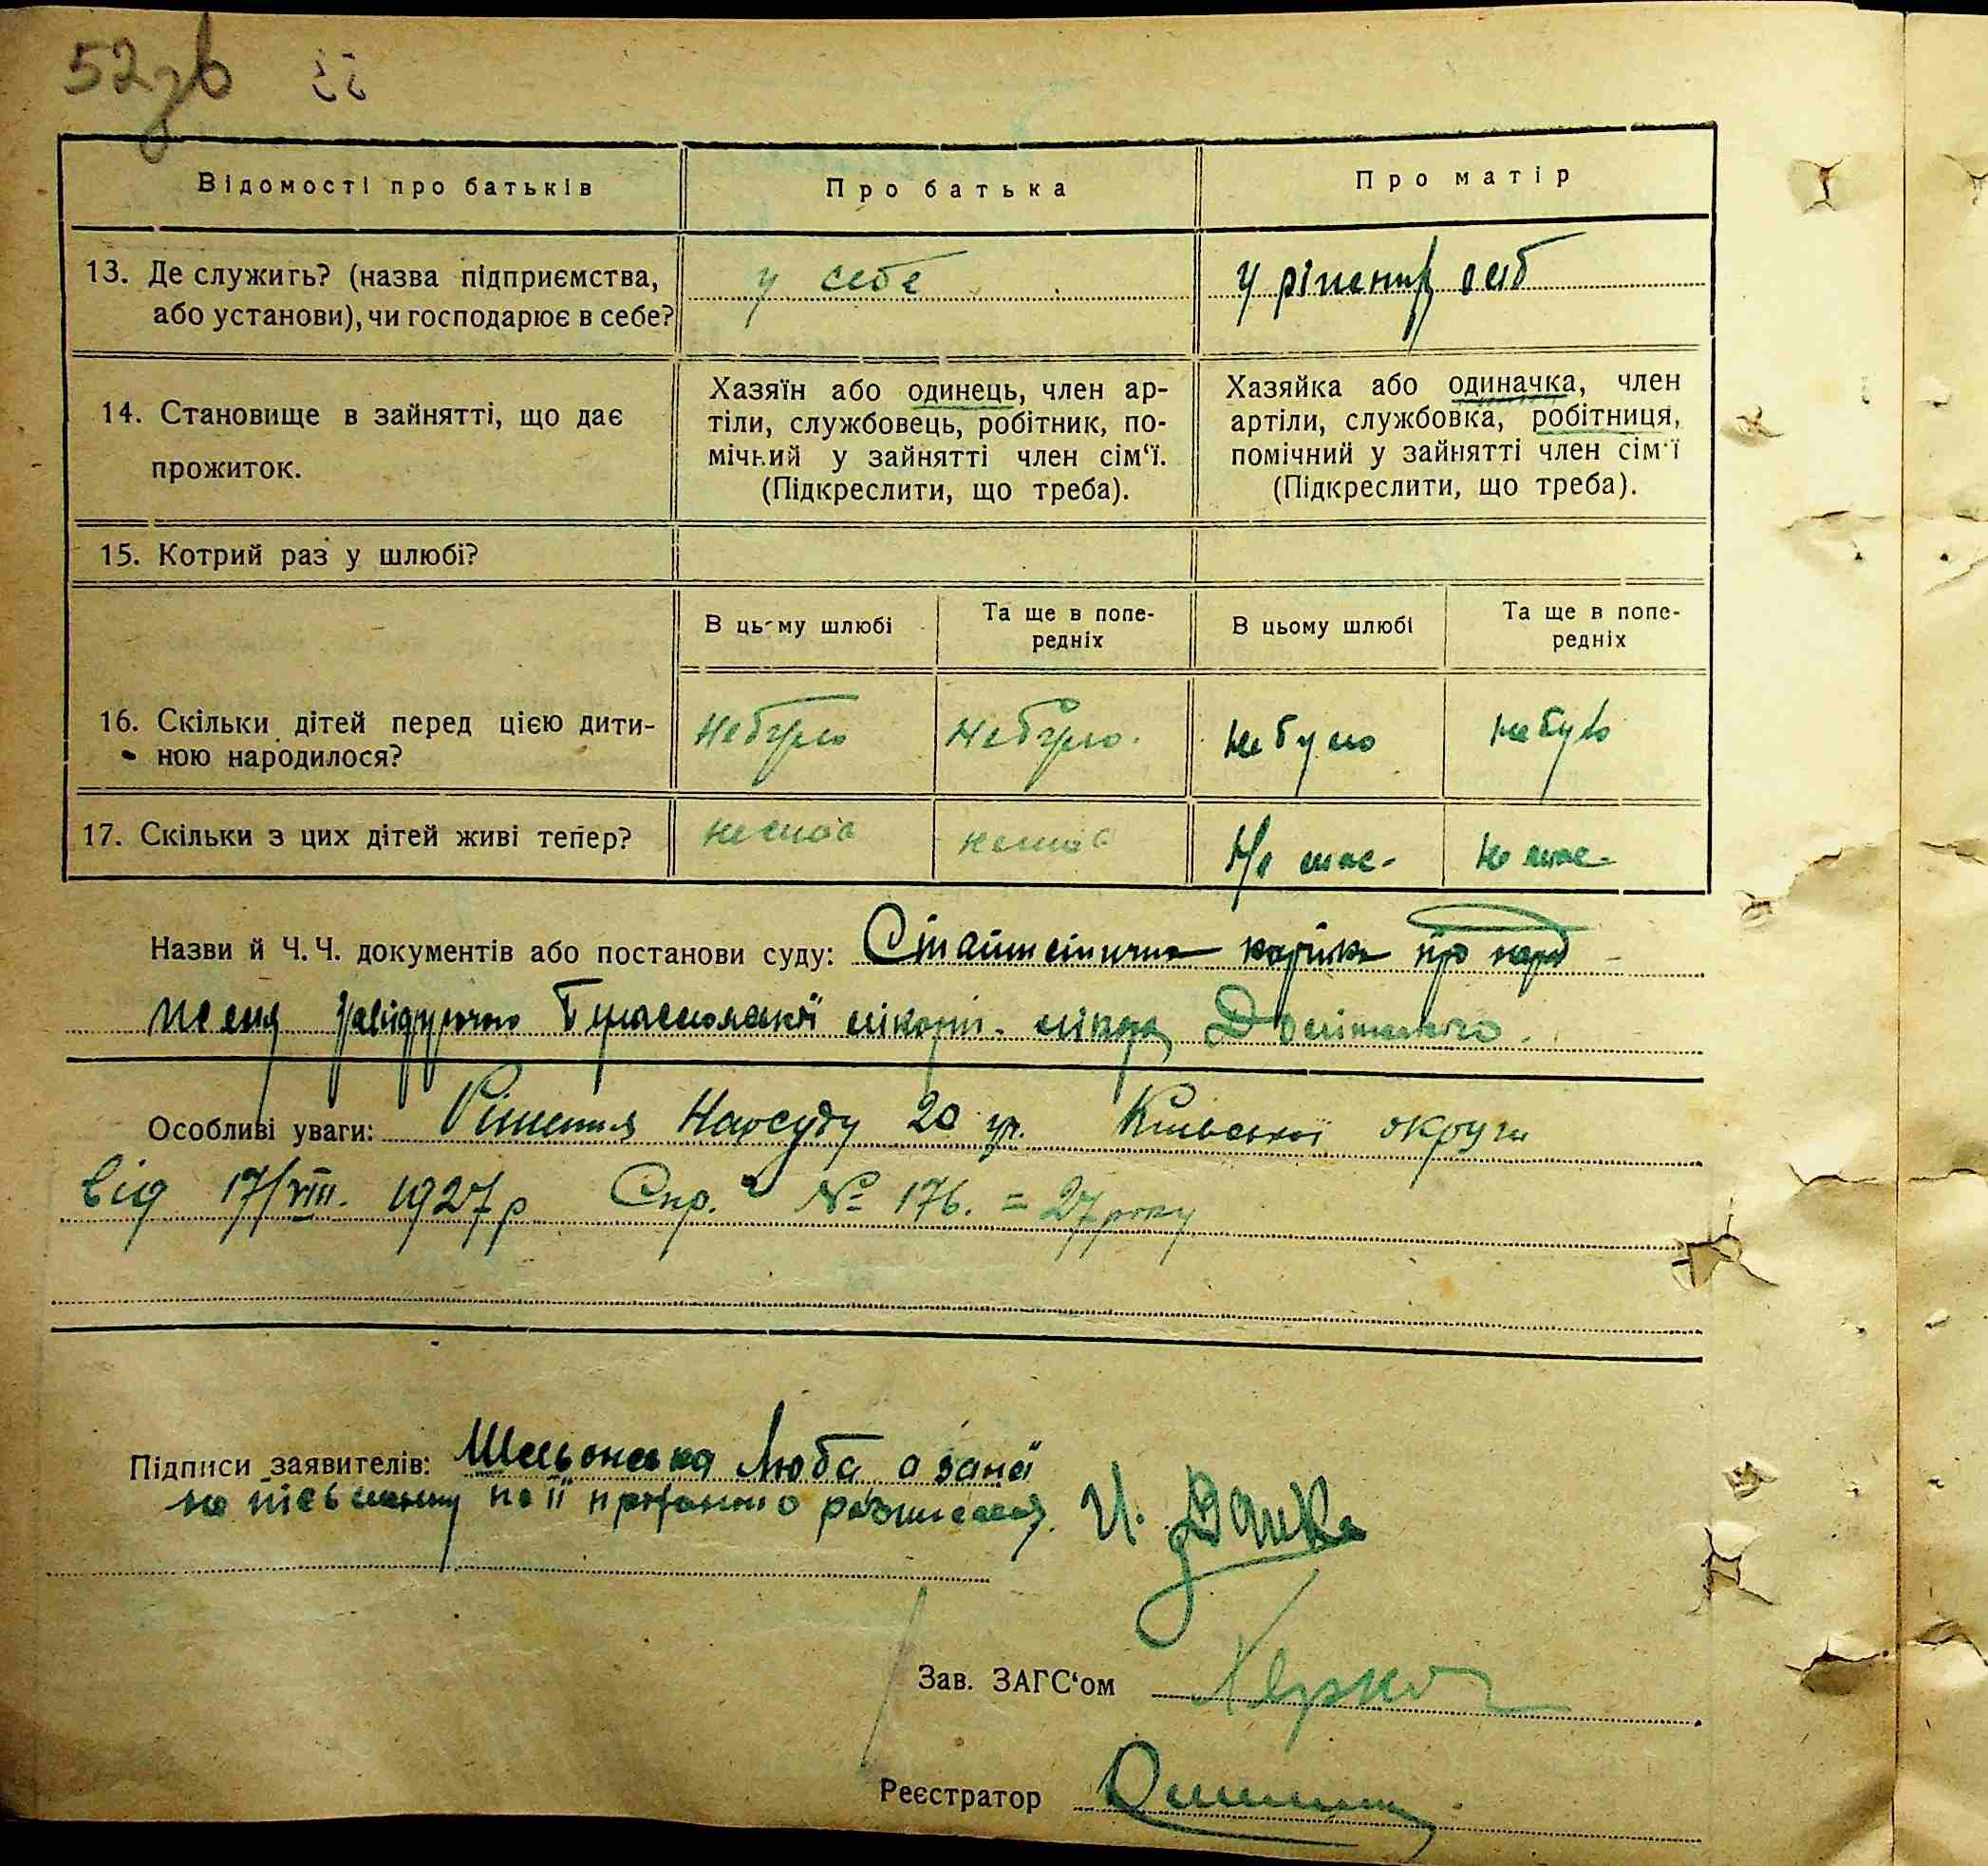 52 зв
Відомості про батьків
Про батька
Про матір
13. Де служить? (назва підприємства,
або установи), чи господарює в себе?
у себе
у ріжних осіб
14. Становище в зайнятті, що дає
прожиток.
Хазяїн або одинець, член ар-
тіли, службовець, робітник, по-
мічний у зайнятті член сім‘ї.
(Підкреслити, що треба).
Хазяйка або одиначка, член
артіли, службовка, робітниця,
помічний у зайнятті член сім‘ї
(Підкреслити, що треба).
15. Котрий раз у шлюбі?
В цьому шлюбі
Та ще в попе-
редніх
В цьому шлюбі
Та ще в попе-
редніх
16. Скільки дітей перед цією дити-
ною народилося?
Небуло
Небуло.
не було
не було
17. Скільки з цих дітей живі тепер?
немає
немає
Не має-
не має-
Назви й Ч. Ч. документів або постанови суду: Статистична картка про народ
ження завідуючого лікарн. лікаря
Особливі уваги: Рішення Нарсуду 20 уч. Київської округи
від 17/VIII. 1927 р Спр. № 176. = 27 року
Підписи заявителів: Люба а за неї
не письменну по її проханню розписався
Зав. ЗАГС‘ом
Реєстратор